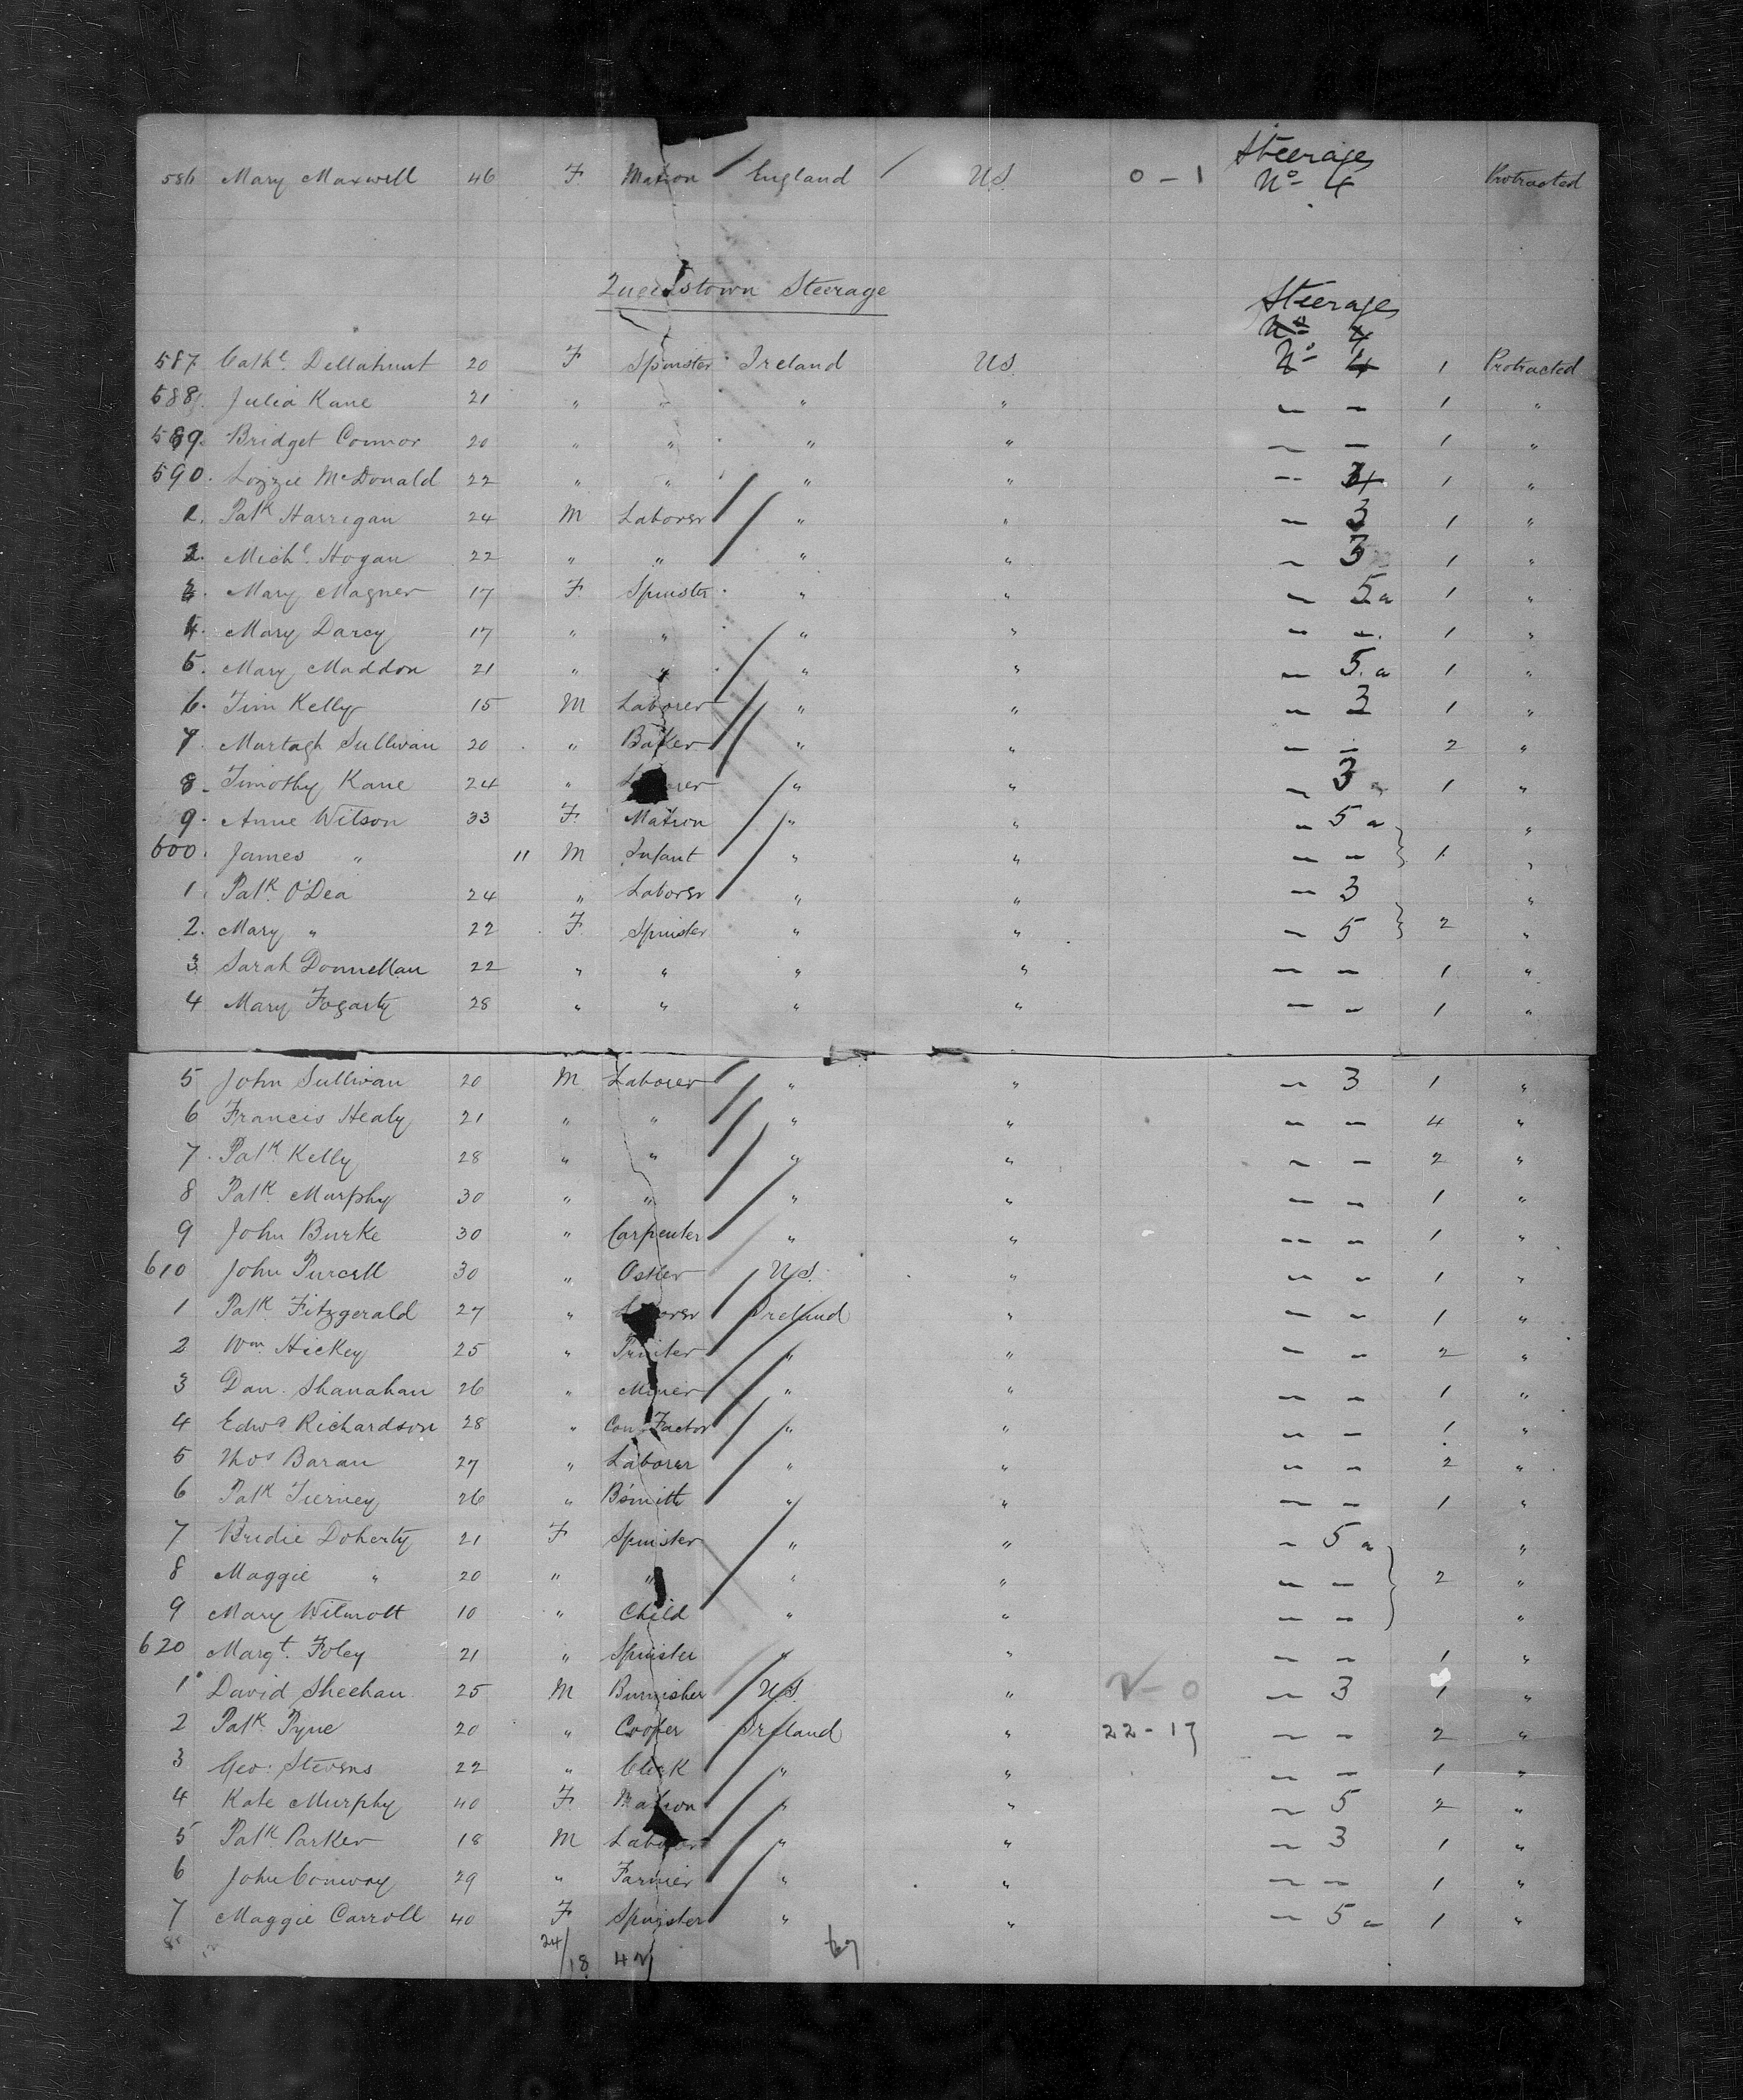 Steerage
586 Mary Maxwell 46 F Matron England U.S. 0 - 1 No 4 Protracted
Queenstown Steerage
Steerage
No 4
587 Cathe Dellahunt 20 F Spinster Ireland U.S. No 4 1 Protracted
588 Julia Kane 21 " " " " — — 1 "
589. Bridget Connor 20 " " " " — — 1 "
590. Lizzie McDonald 22 " " " " — 1 "
1. Patk Harrigan 24 M Laborer " " — 3 1 "
2. Michl Hogan 22 " " " " — 3 1 "
3. Mary Magner 17 F Spinster " " — 5a 1 "
4. Mary Darcy 17 " " " " — — 1 "
5. Mary Maddon 21 " " " " — 5.a 1 "
6. Tim Kelly 15 M Laborer " " — 3 1 "
7. Murtagh Sullivan 20 " Baker " " — — 2 "
8. Timothy Kane 24 " " " — 3 1 "
9. Anne Wilson 33 F Matron " " — 5 a "
600. James " 11 M Infant " " — — } 1 "
1. Patk O'Dea 24 " Laborer " " — 3 "
2. Mary " 22 F Spinster " " — 5 } 2 "
3 Sarah Donnellan 22 " " " " — — 1 "
4 Mary Fogarty 28 " " " " — — 1 "
5 John Sullivan 20 M Laborer " " — 3 1 "
6 Francis Healy 21 " " " " — — 4 "
7. Patk Kelly 28 " " " " — — 2 "
8 Patk Murphy 30 " " " " — — 1 "
9 John Burke 30 " Carpenter " " — — 1 "
610 John Purcell 30 " Ostler U.S. " — — 1 "
1 Patk Fitzgerald 27 " Ireland " — — 1 "
2 Wm Hickey 25 " Printer " " — — 2 "
3 Dan. Shanahan 26 " Miner " " — — 1 "
4 Edwd Richardson 28 " Factor " " — — 1 "
5 Thos Baran 27 " Laborer " " — — 2 "
6 Patk Tierney 26 " B'smith " " — — 1 "
7 Bridie Doherty 21 F Spinster " " — 5 a "
8 Maggie " 20 " " " " — — } 2 "
9 Mary Wilmott 10 " Child " " — — "
620 Margt. Foley 21 " Spinster " " — — 1 "
1 David Sheehan 25 M Burnisher U.S. " — 3 1 "
2 Patk Pyne 20 " Cooper Ireland " 22 - 17 — — 2 "
3 Geo: Stevens 22 " Clerk " " — — 1 "
4 Kate Murphy 40 F Matron " " — 5 2 "
5 Patk Parker 18 M Laborer " " — 3 1 "
6 John Conway 29 " Farrier " " — — 1 "
7 Maggie Carroll 40 F Spinster " " — 5 a 1 "
24/18 42